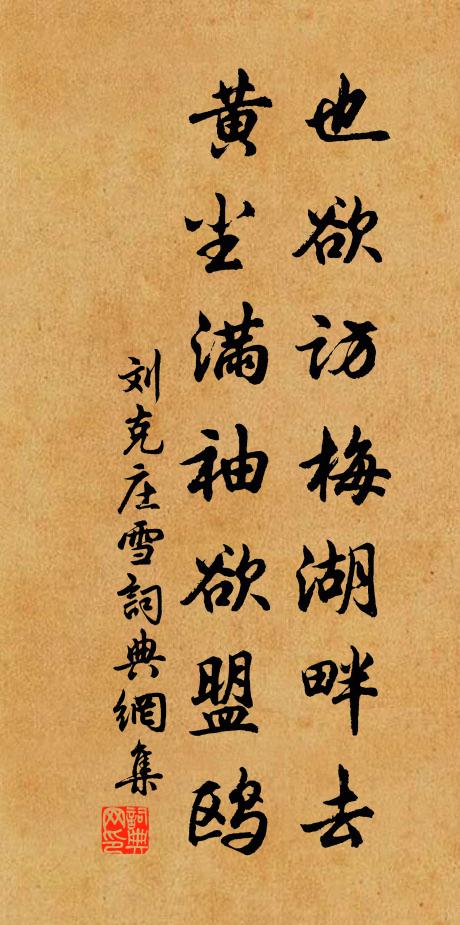 也欲访梅湖畔去
黄尘满袖欲盟鸥
刘克庄雪詞典網集
詞典网印